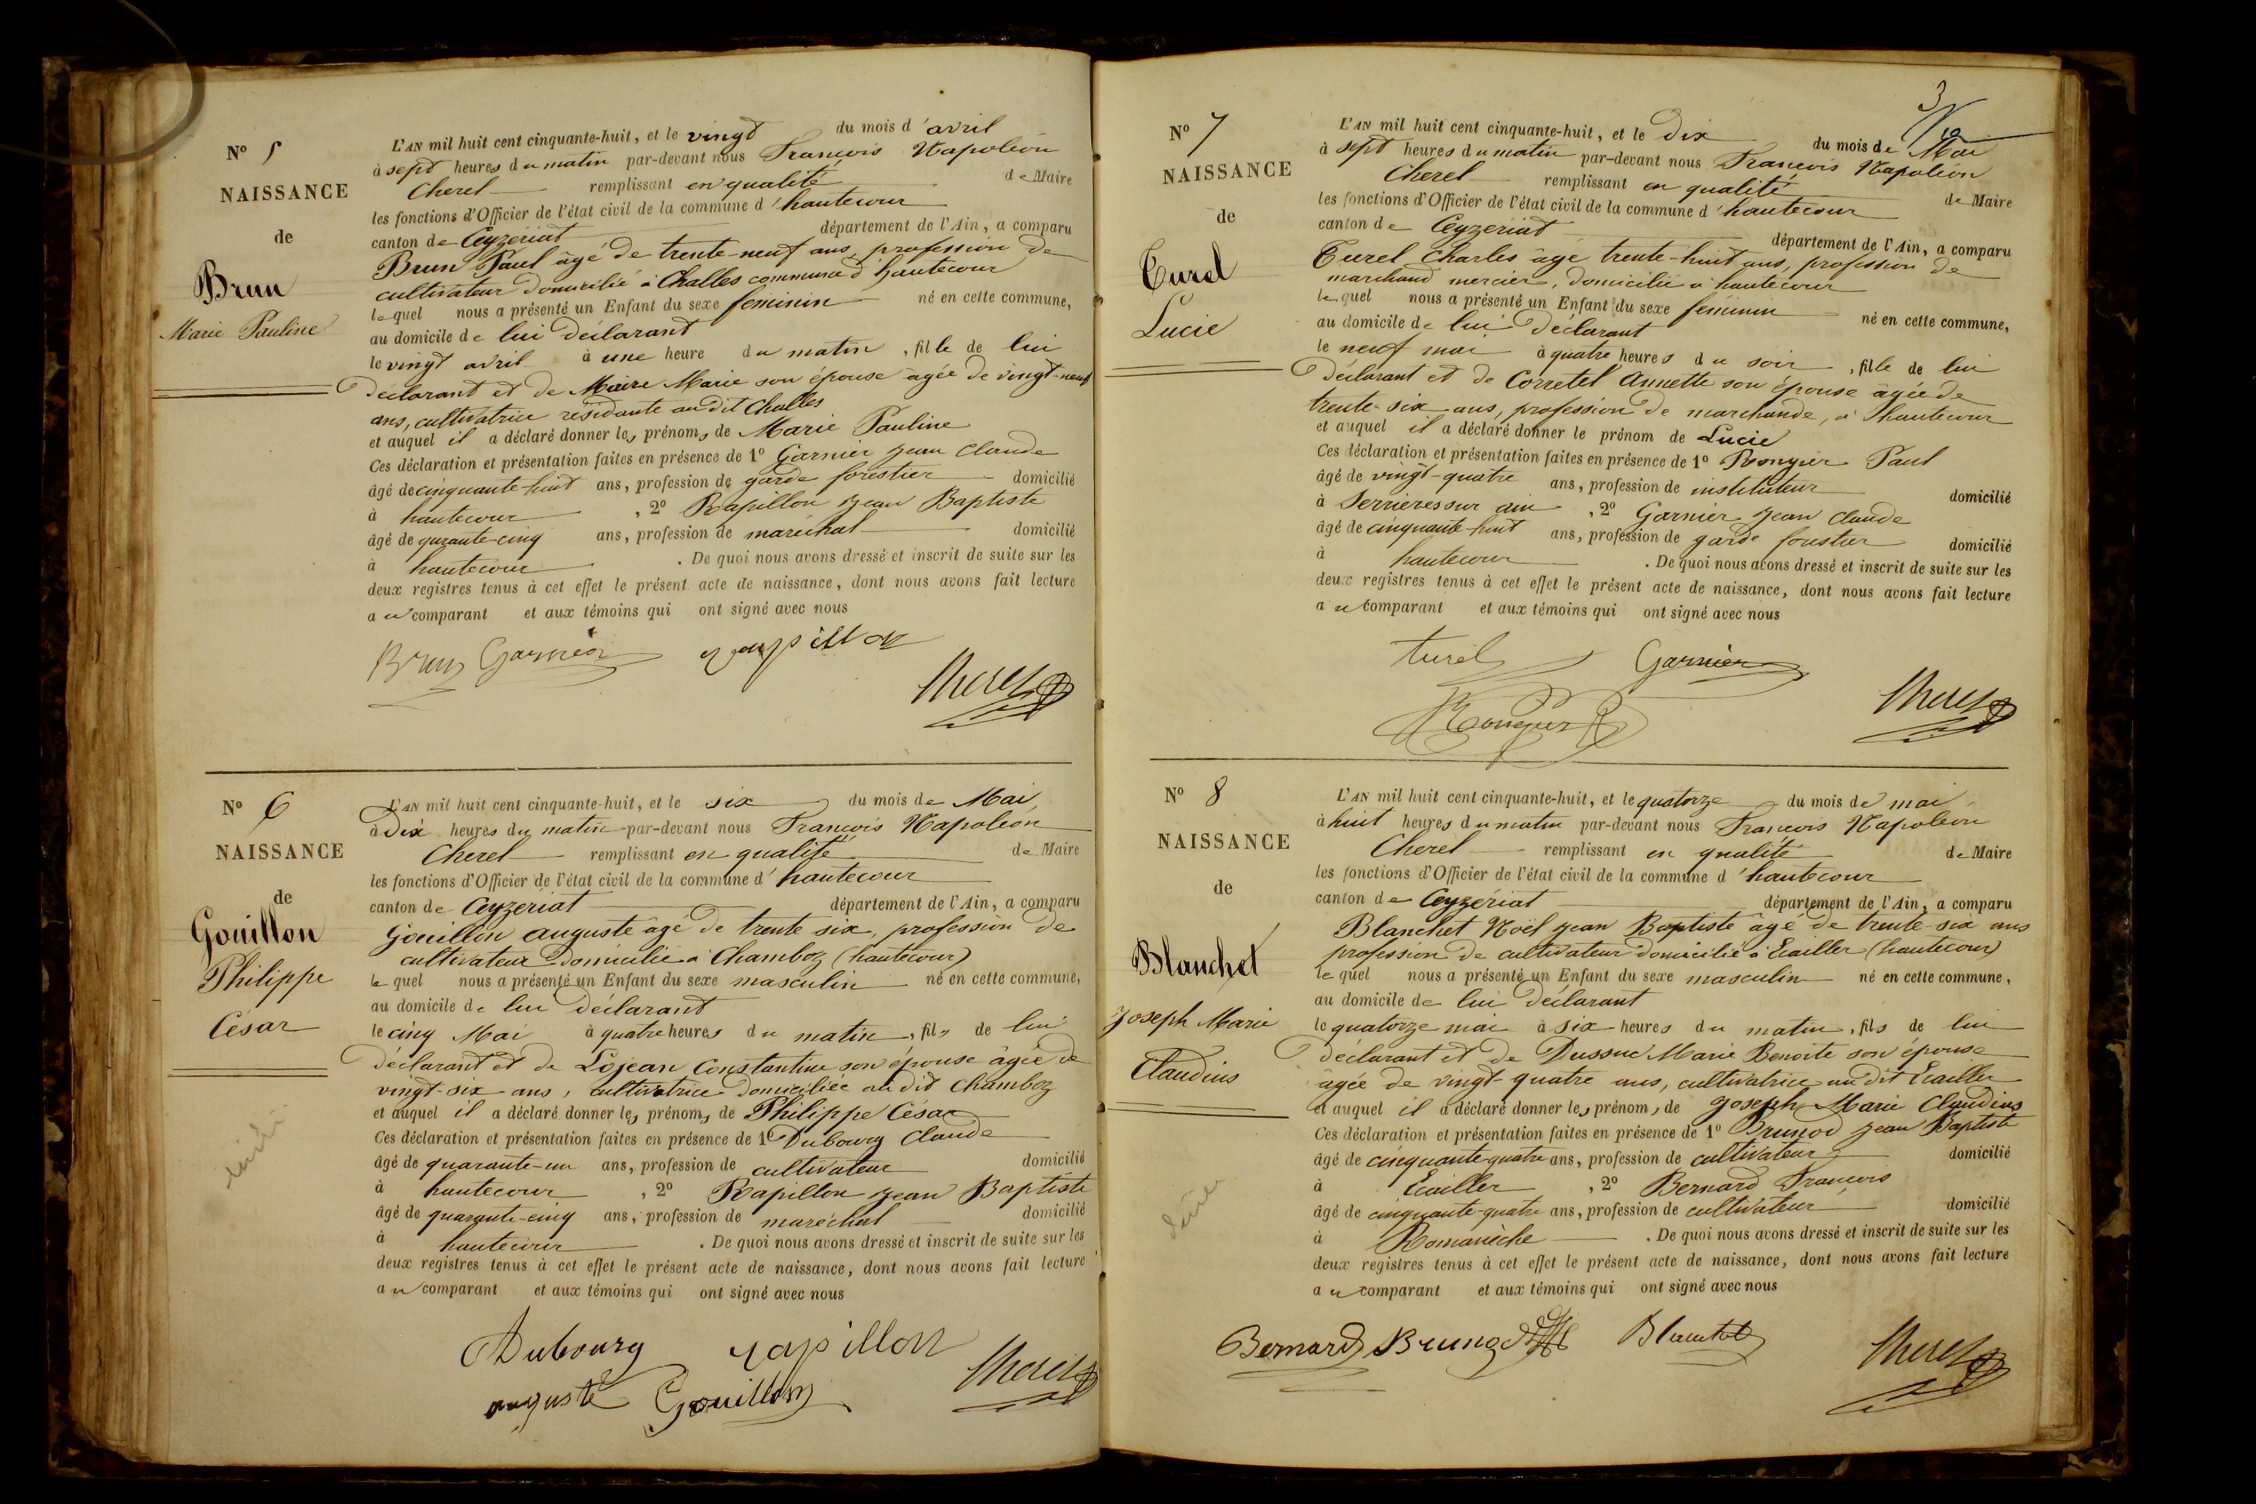 N° 5
NAISSANCE
de
Brun
Marie Pauline
L'AN mil huit cent cinquante-huit, et le vingt du mois d'avril
à sept heures du matin par-devant nous François Napoléon
Cherel remplissant en qualité de Maire
les fonctions d'Officier de l'état civil de la commune d'hautecour
canton de Ceyzériat département de l'Ain, a comparu
Brun Paul âgé de trente-neuf ans, profession de
cultivateur domicilié à Challes commune d'hautecour
lequel nous a présenté un Enfant du sexe feminin né en cette commune,
au domicile de lui déclarant
le vingt avril à une heure du matin, fille de lui
déclarant et de Maire Marie son épouse âgée de vingt-neuf
ans, cultivatrice résidante au dit Challes
et auquel il a déclaré donner les prénoms de Marie Pauline
Ces déclaration et présentation faites en présence de 1° Garnier Jean Claude
âgé de cinquante-huit ans, profession de garde forestier domicilié
à hautecour, 2° Rapillon Jean Baptiste
âgé de quarante-cinq ans, profession de maréchal domicilié
à hautecour. De quoi nous avons dressé et inscrit de suite sur les
deux registres tenus à cet effet le présent acte de naissance, dont nous avons fait lecture
au comparant et aux témoins qui ont signé avec nous
Brun Garnier rapillon
Cherel
N° 6
NAISSANCE
de
Gouillon
Philippe
César
L'AN mil huit cent cinquante-huit, et le six du mois de Mai,
à Dix heures du matin par-devant nous François Napoléon
Cherel remplissant en qualité de Maire
les fonctions d'Officier de l'état civil de la commune d'hautecour
canton de Ceyzériat département de l'Ain, a comparu
Gouillon auguste âgé de trente six, profession de
cultivateur domicilié à Chamboz (hautecour)
lequel nous a présenté un Enfant du sexe masculin né en cette commune,
au domicile de lui déclarant
le cinq Mai à quatre heures du matin, fils de lui
déclarant et de Lojean Constantine son épouse âgée de
vingt-six ans, cultivatrice domiciliée au dit Chamboz
et auquel il a déclaré donner les prénoms de Philippe César
Ces déclaration et présentation faites en présence de 1° Dubourg Claude
âgé de quarante-un ans, profession de cultivateur domicilié
à hautecour, 2° Rapillon Jean Baptiste
âgé de quarante-cinq ans, profession de maréchal domicilié
à hautecour. De quoi nous avons dressé et inscrit de suite sur les
deux registres tenus à cet effet le présent acte de naissance, dont nous avons fait lecture
au comparant et aux témoins qui ont signé avec nous
Dubourg rapillon
auguste Gouillon Cherel
3
N° 7
NAISSANCE
de
Turel
Lucie
L'AN mil huit cent cinquante-huit, et le Dix du mois de Mai
à sept heures du matin par-devant nous François Napoléon
Cherel remplissant en qualité de Maire
les fonctions d'Officier de l'état civil de la commune d'hautecour
canton de Ceyzériat département de l'Ain, a comparu
Turel Charles âgé trente-huit ans, profession de
marchand mercier, domicilié à hautecour
lequel nous a présenté un Enfant du sexe féminin né en cette commune,
au domicile de lui déclarant
le neuf mai à quatre heures du soir, fille de lui
déclarant et de Corretel Annette son épouse âgée de
trente-six ans, profession de marchande, à hautecour
et auquel il a déclaré donner le prénom de Lucie
Ces déclaration et présentation faites en présence de 1° Rongier Paul
âgé de vingt-quatre ans, profession de instituteur domicilié
à Serrieres sur ain, 2° Garnier Jean Claude
âgé de cinquante-huit ans, profession de garde forestier domicilié
à hautecour. De quoi nous avons dressé et inscrit de suite sur les
deux registres tenus à cet effet le présent acte de naissance, dont nous avons fait lecture
au comparant et aux témoins qui ont signé avec nous
turel Garnier
Rongier Cherel
N° 8
NAISSANCE
de
Blanchet
Joseph Marie
Claudius
L'AN mil huit cent cinquante-huit, et le quatorze du mois de mai
à huit heures du matin par-devant nous François Napoléon
Cherel remplissant en qualité de Maire
les fonctions d'Officier de l'état civil de la commune d'hautecour
canton de Ceyzériat département de l'Ain, a comparu
Blanchet Noël Jean Baptiste âgé de trente-six ans
profession de cultivateur domicilié à Ecailler (hautecour)
lequel nous a présenté un Enfant du sexe masculin né en cette commune,
au domicile de lui déclarant
le quatorze mai à six heures du matin, fils de lui
déclarant et de Dussuc Marie Benoite son épouse
âgée de vingt-quatre ans, cultivatrice au dit Ecailler
et auquel il a déclaré donner les prénoms de Joseph Marie Claudius
Ces déclaration et présentation faites en présence de 1° Brunod Jean Baptiste
âgé de cinquante-quatre ans, profession de cultivateur domicilié
à Ecailler, 2° Bernard François
âgé de cinquante-quatre ans, profession de cultivateur domicilié
à Romanèche. De quoi nous avons dressé et inscrit de suite sur les
deux registres tenus à cet effet le présent acte de naissance, dont nous avons fait lecture
au comparant et aux témoins qui ont signé avec nous
Bernard Brunod Blanchet
Cherel